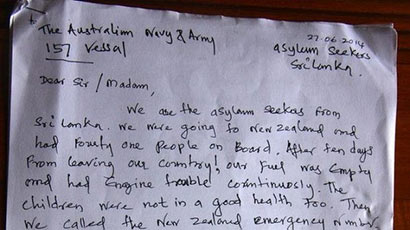 The Australian Navy & Army
27.06.2014
157 Vessal
asylum Seekers
Sri Lanka.
Dear Sir / Madam,
We are the asylum Seekers from
Sri Lanka. We were going to New Zealand and
had fourty one people on Board. After ten days
From leaving our country, our Fuel was Empty
and had Engine trouble continuosly. The
children were not in a good health too. Then
we called the New Zealand emergency number